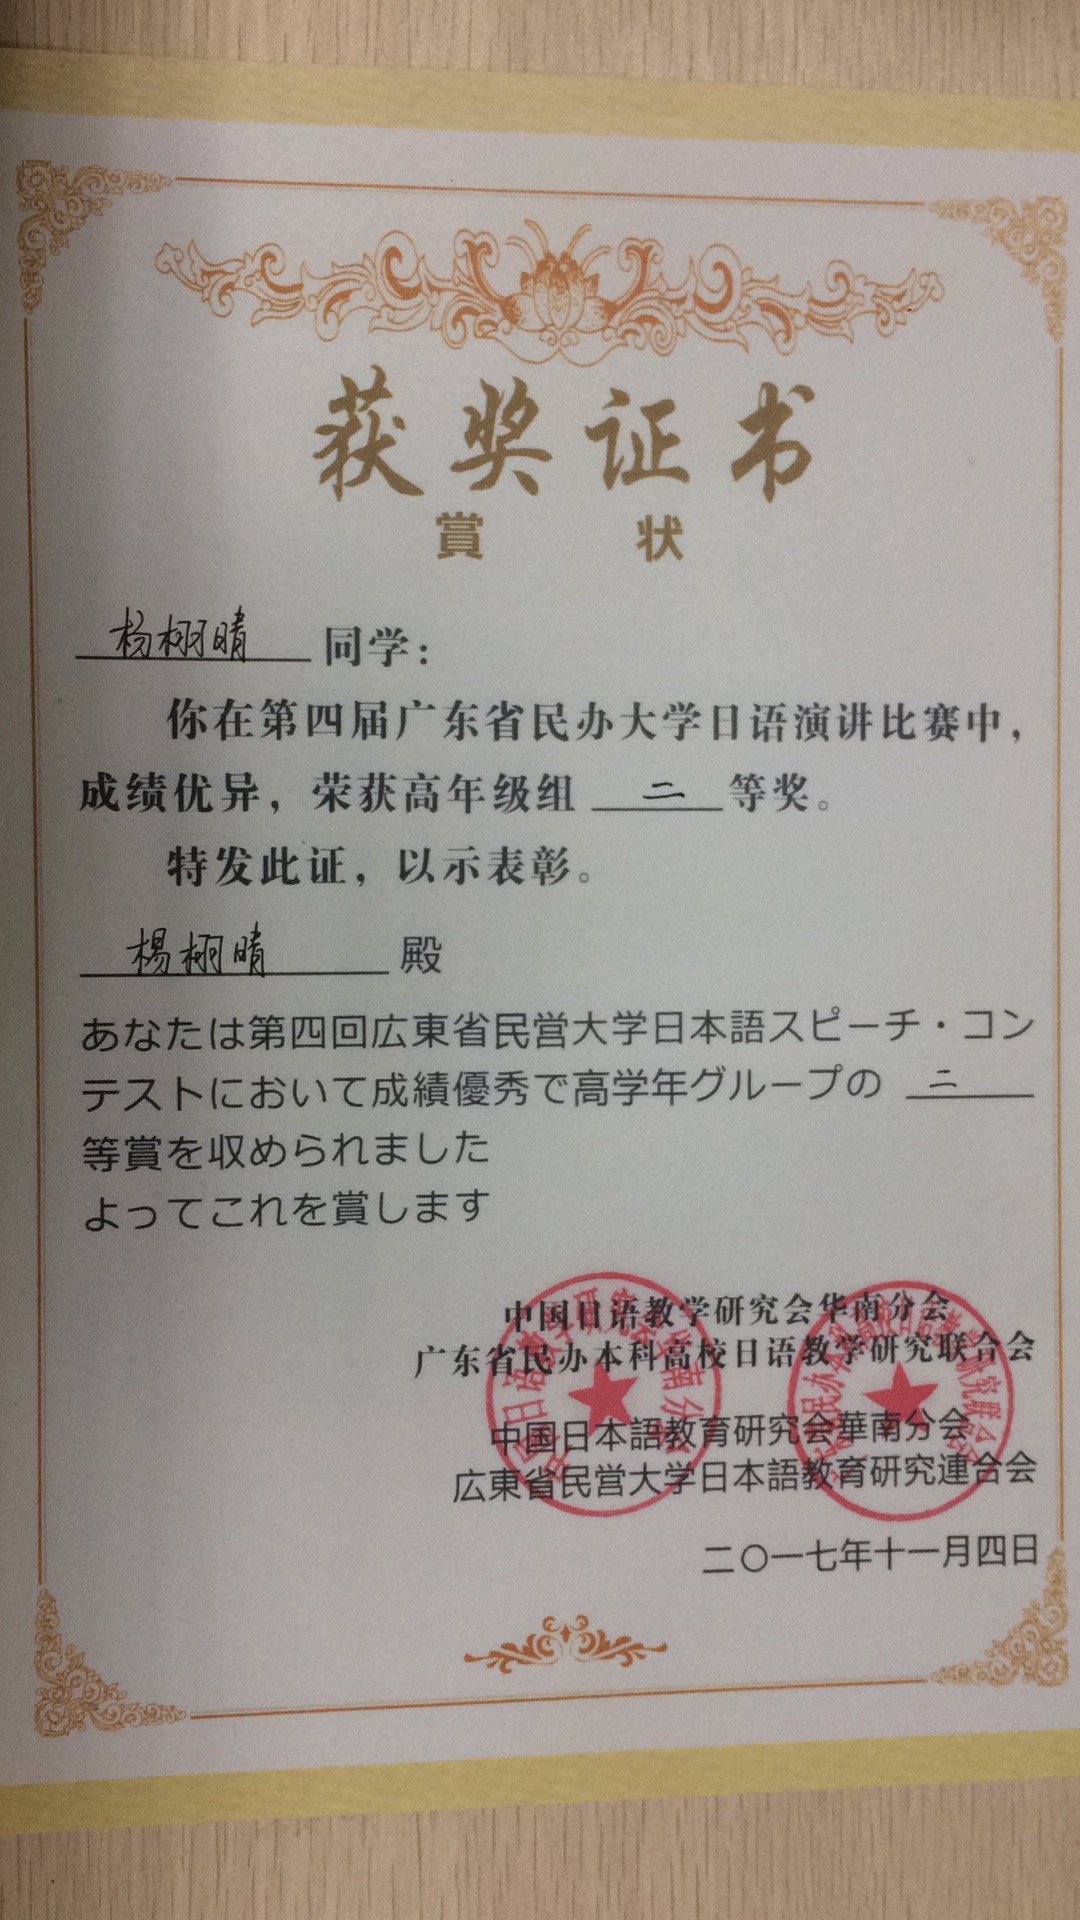 获奖证书
賞状
杨栩晴 同学：
你在第四届广东省民办大学日语演讲比赛中，
成绩优异，荣获高年级组 二 等奖。
特发此证，以示表彰。
楊栩晴 殿
あなたは第四回広東省民営大学日本語スピーチ・コン
テストにおいて成績優秀で高学年グループの 二
等賞を収められました
よってこれを賞します
中国日语教学研究会华南分会
广东省民办本科高校日语教学研究联合会
中国日本語教育研究会華南分会
広東省民営大学日本語教育研究連合会
二〇一七年十一月四日